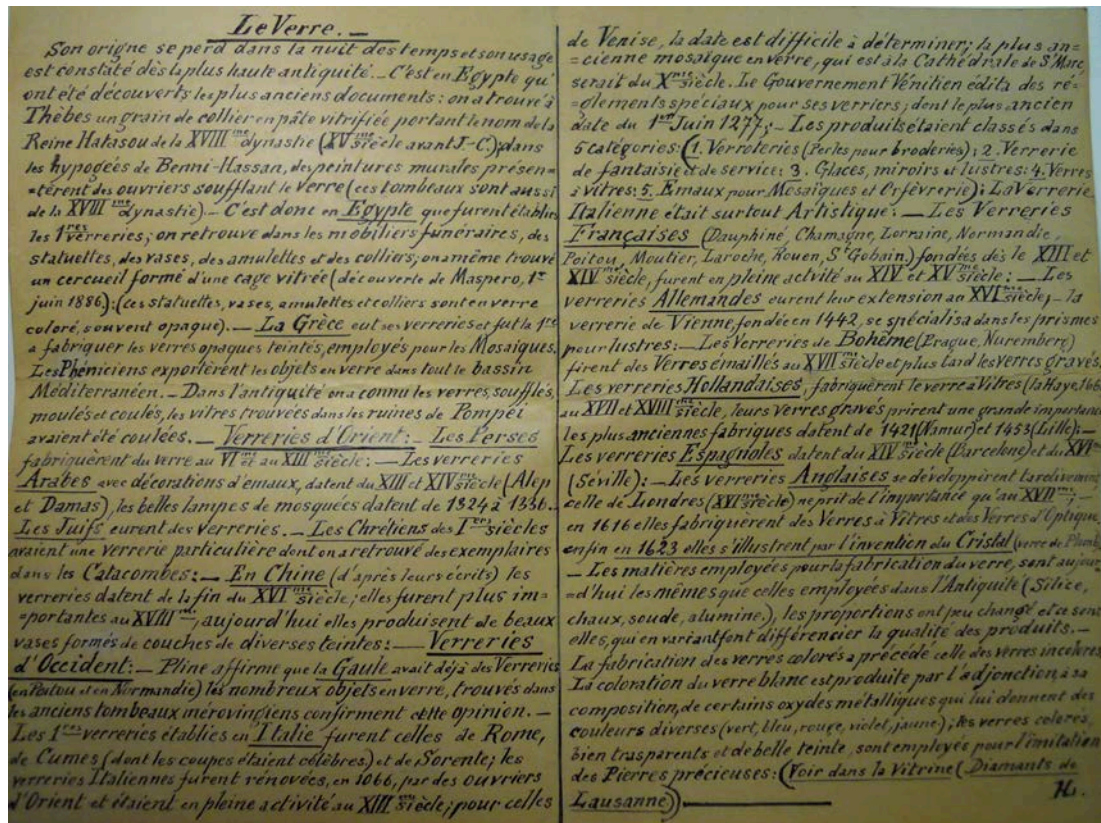 Le Verre. —
Son origine se perd dans la nuit des temps et son usage
est constaté dès la plus haute antiquité. — C'est en Egypte qu'
ont été découverts les plus anciens documents : on a trouvé à
Thèbes un grain de collier en pâte vitrifiée portant le nom de la
Reine Hatasou de la XVIII me dynastie (XV me siècle avant J.-C.); dans
les hypogées de Benni-Hassan, des peintures murales présen=
=tèrent des ouvriers soufflant le verre (ces tombeaux sont aussi
de la XVIII me dynastie). — C'est donc en Egypte que furent établies
les 1res verreries; on retrouve dans les mobiliers funéraires, des
statuettes, des vases, des amulettes et des colliers; on a même trouvé
un cercueil formé d'une cage vitrée (découverte de Maspero, 1er
juin 1886): (ces statuettes, vases, amulettes et colliers sont en verre
coloré, souvent opaque). — La Grèce eut ses verreries et fut la 1re
a fabriquer les verres opaques teintés, employés pour les Mosaïques.
Les Phéniciens exportèrent les objets en verre dans tout le bassin
Méditerranéen. — Dans l'antiquité on a connu les verres, soufflés,
moulés et coulés, les vitres trouvées dans les ruines de Pompéi
avaient été coulées. — Verreries d'Orient: — Les Perses
fabriquèrent du verre au VI me et au XIII me siècle: — Les verreries
Arabes avec décorations d'emaux, datent du XIII et XIV me siècle (Alep
et Damas), les belles lampes de mosquées datent de 1324 à 1336.
Les Juifs eurent des verreries. — Les Chrétiens des Iers siècles
avaient une verrerie particutière dont on a retrouvé des exemplaires
dans les Catacombes: — En Chine (d'après leurs écrits) les
verreries datent de la fin du XVI me siècle; elles furent plus im=
=portantes au XVIII me; aujourd'hui elles produisent de beaux
vases formés de couches de diverses teintes: — Verreries
d'Occident: — Pline affirme que la Gaule avait déjà des Verreries
(en Poitou et en Normandie) les nombreux objets en verre, trouvés dans
les anciens tombeaux mérovingiens confirment cette opinion. —
Les 1res verreries établies en Italie furent celles de Rome,
de Cumes (dont les coupes étaient célèbres) et de Sorente; les
verreries Italiennes furent rénovées, en 1066, par des ouvriers
d'Orient et étaient en pleine activité au XIII me siècle; pour celles
de Venise, la date est difficile à déterminer; la plus an=
=cienne mosaïque en verre, qui est à la Cathédrale de St Marc
serait du X me siècle. Le Gouvernement Vénitien édita des ré=
=glements spéciaux pour ses verriers; dont le plus ancien
date du 1er Juin 1277; — Les produits étaient classés dans
5 catégories: (1. Verroteries (Perles pour broderies); 2. Verrerie
de fantaisie et de service: 3. Glaces, miroirs et lustres: 4. Verres
à vitres: 5. Emaux pour Mosaïques et Orfèvrerie); La Verrerie
Italienne était surtout Artistique: — Les Verreries
Françaises (Dauphiné, Chamagne, Lorraine, Normandie,
Poitou, Moutier, Laroche, Rouen, St Gobain.) fondées dès le XIII et
XIV me siècle, furent en pleine activité au XIV et XV me siècle: — Les
verreries Allemandes eurent leur extension au XVI me siècle, — la
verrerie de Vienne, fondée en 1442, se spécialisa dans les prismes
pour lustres: — Les Verreries de Bohême (Prague, Nuremberg)
firent des Verres émaillés au XVII me siècle et plus tard les verres gravés.
Les verreries Hollandaises, fabriquèrent le verre à Vitres (la Haye
au XVII et XVIII me siècle, leurs Verres gravés prirent une grande importance
les plus anciennes fabriques datent de 1421 (Namur) et 1453 (Lille); —
Les verreries Espagnoles datent du XIV me siècle (Barcelone) et du XVI me
(Séville): — Les verreries Anglaises se développèrent tardivement
celle de Londres (XVI me siècle) ne prit de l'importance qu'au XVII me: —
en 1616 elles fabriquèrent des Verres à Vitres et des Verres d'Optique,
enfin en 1623 elles s'illustrent par l'invention du Cristal (verre de Plomb)
— Les matières employées pour la fabrication du verre, sont aujour=
=d'hui les mêmes que celles employées dans l'Antiquité (Silice,
chaux, soude, alumine.), les proportions ont peu changé et ce sont
elles, qui en variant font différencier la qualité des produits. —
La fabrication des verres colorés a précédé celle des verres incolores
La coloration du verre blanc est produite par l'adjonction, à sa
composition, de certains oxydes métalliques qui lui donnent des
couleurs diverses (vert, bleu, rouge, violet, jaune); les verres colorés,
bien trasparents et de belle teinte, sont employés pour l'imitation
des Pierres précieuses: (Voir dans la Vitrine (Diamants de
Lausanne))